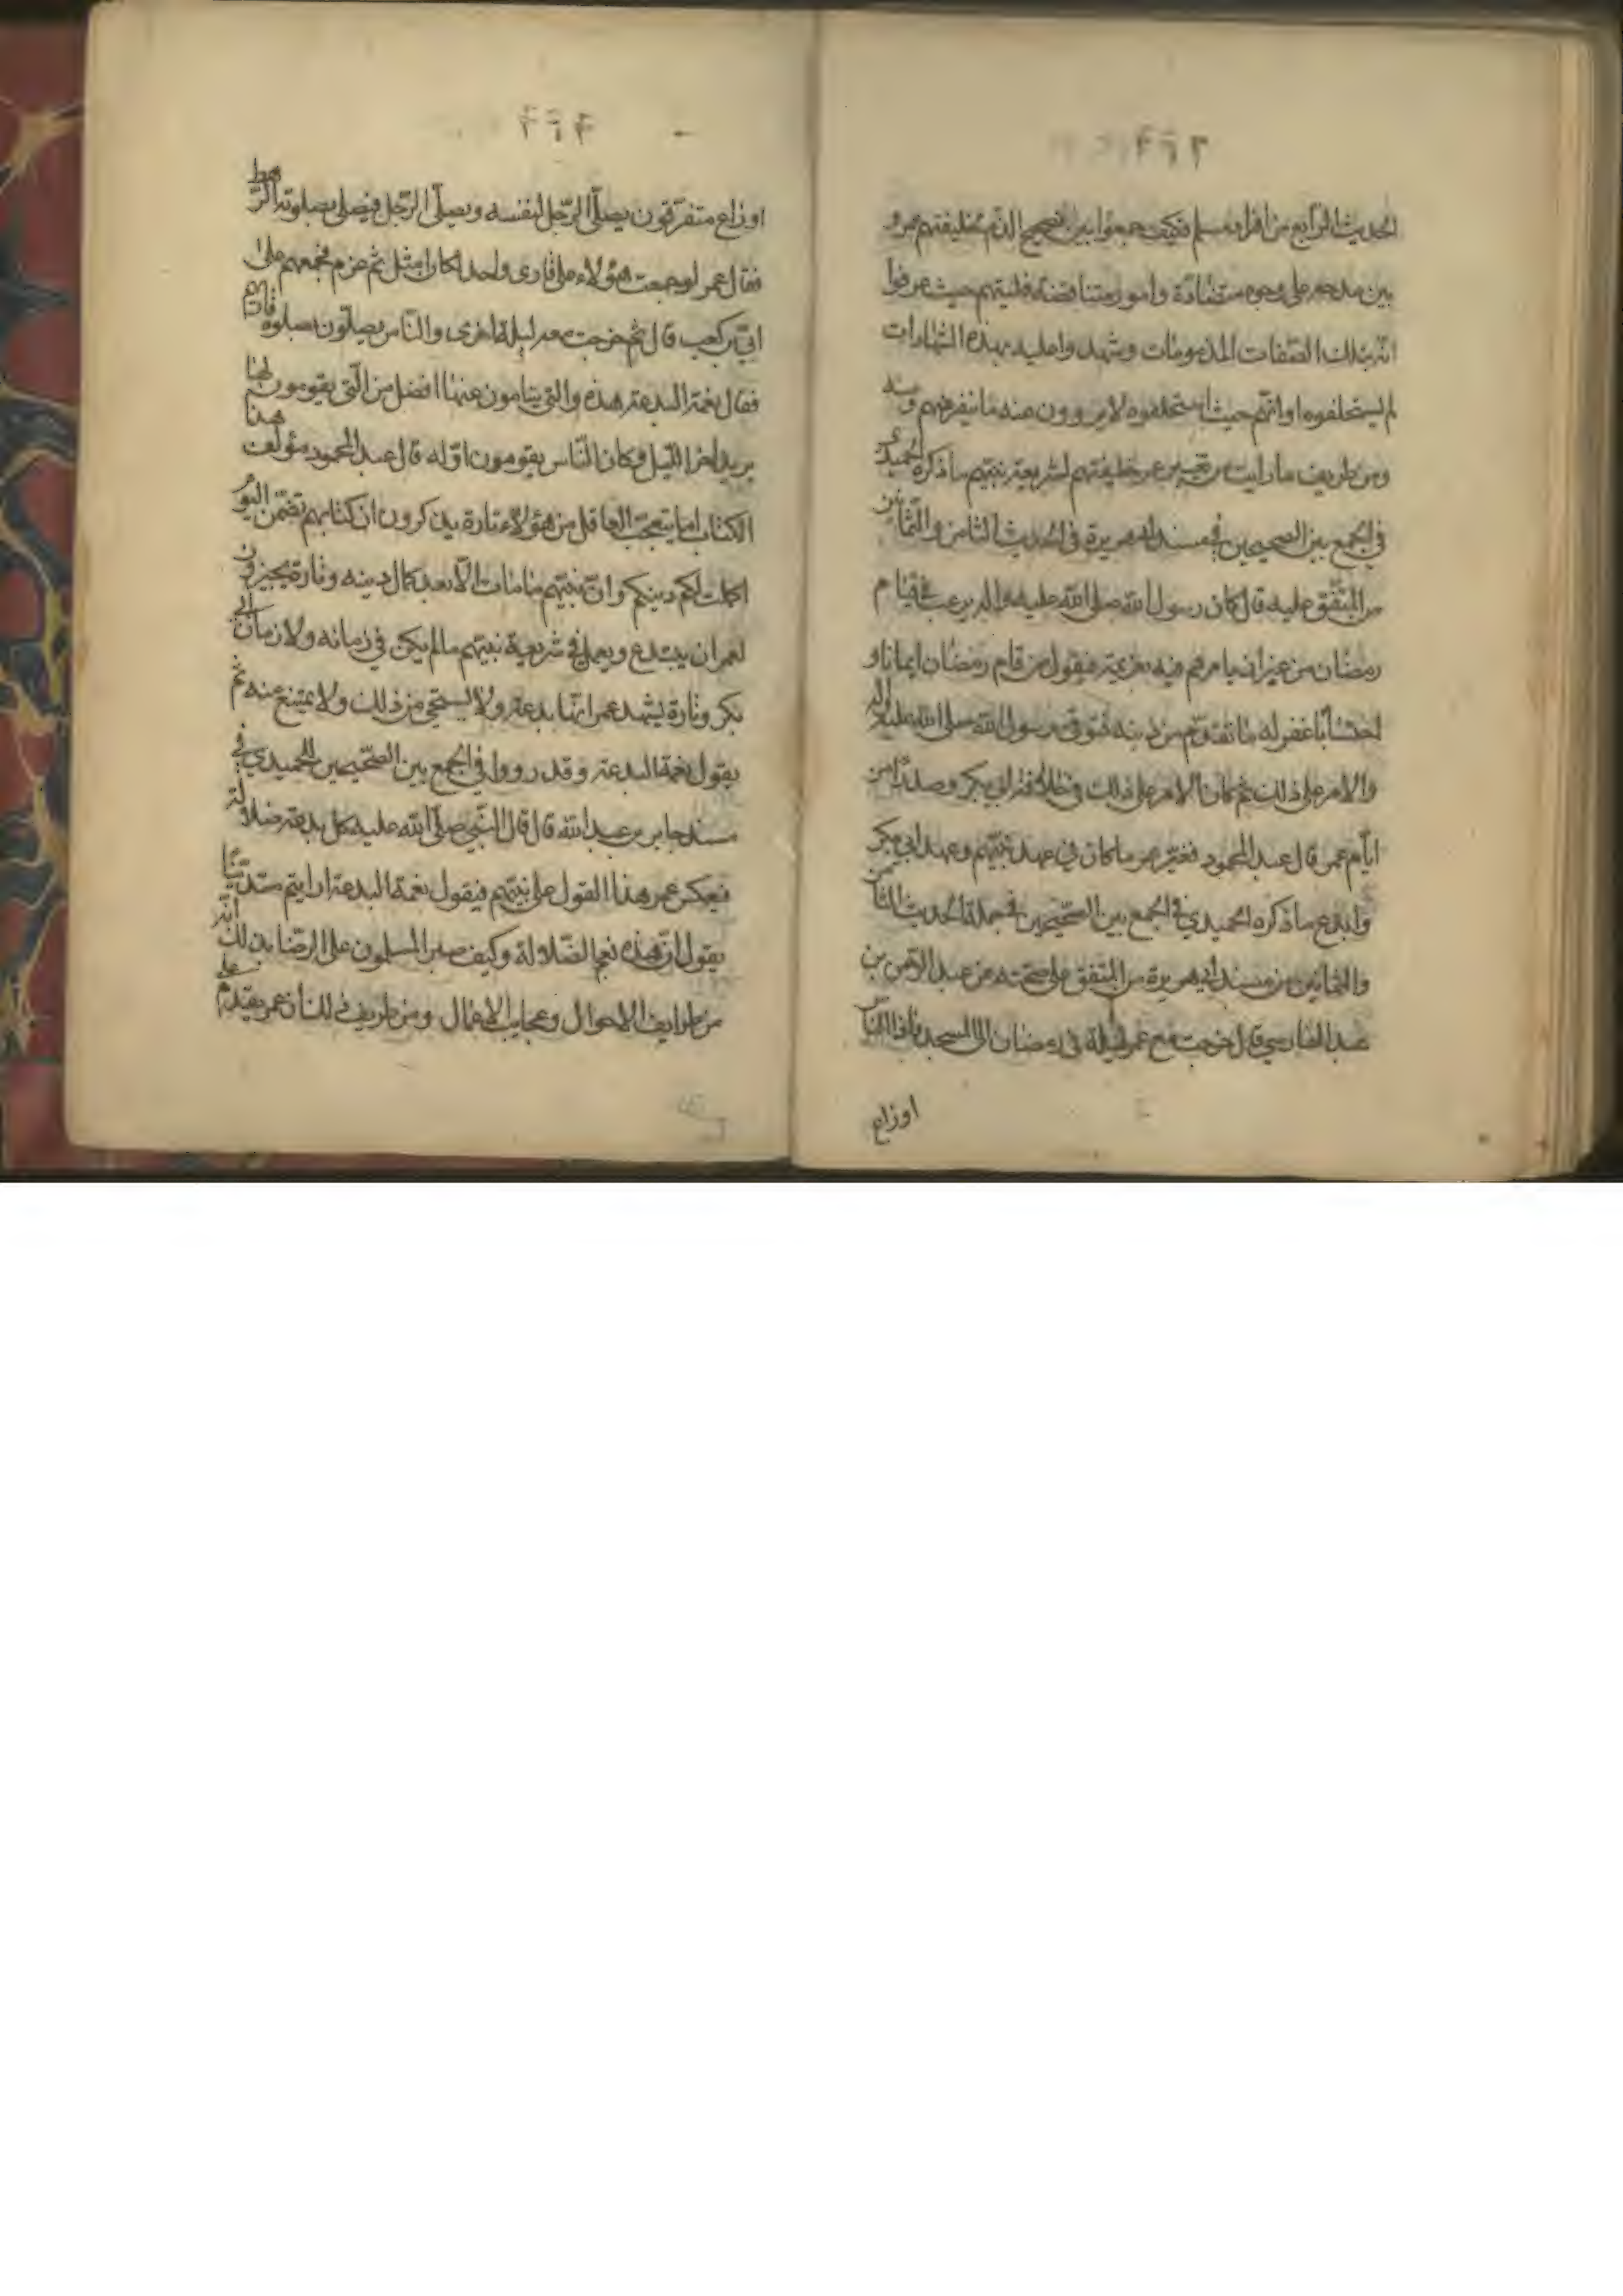 الحديث الرابع من افراد مسلم فكيف جمعوا بين تصحيح الذم لخليفتهم عمر و
بين مدحه على وجوه متضادة وامور متناقضة فليتهم حيث عرفوا
انه بتلك الصفات المذمومات وشهدوا عليه بهذه الشهادات
لم يستخلفوه او انهم حيث استخلفوه لا يروون عنه ما ينفرهم
ومن طريف ما رايت من تغيير عمر خليفتهم لشريعة نبيهم ما ذكره الحميدي
في الجمع بين الصحيحين في مسند ابي هريرة في الحديث الثامن والثمانين
من المتفق عليه قال كان رسول الله صلى الله عليه واله يرغب في قيام
رمضان من غير ان يامرهم فيه بعزيمة فيقول من قام رمضان ايمانا و
احتسابا غفر له ما تقدم من ذنبه فتوفى رسول الله صلى الله عليه واله
والامر على ذلك ثم كان الامر على ذلك في خلافة ابي بكر وصدرا من
ايام عمر قال عبد المحمود فغير عمر ما كان في عهد نبيهم وعهد ابي بكر
وابدع ما ذكره الحميدي في الجمع بين الصحيحين في جملة الحديث الثامن
والثمانين من مسند ابي هريرة من المتفق على صحته عن عبد الرحمن بن
عبد القاري قال خرجت مع عمر ليلة في رمضان الى المسجد فاذا الناس
اوزاع
٤٦٤
اوزاع متفرقون يصلي الرجل لنفسه ويصلي الرجل فيصلي بصلوته الرهط
فقال عمر لو جمعت هؤلاء على قارى واحد لكان امثل ثم عزم فجمعهم على
ابي بن كعب قال ثم خرجت معه ليلة اخرى والناس يصلون بصلوة قاريهم
فقال نعمة البدعة هذه والتي ينامون عنها افضل من التي يقومون
يريد اخر الليل وكان الناس يقومون اوله قال عبد المحمود مؤلف هذا
الكتاب اما يتعجب العاقل من هؤلاء تارة يذكرون ان كتابهم تضمن اليوم
اكملت لكم دينكم وان نبيهم ما مات الا بعد كمال دينه وتارة يجيزون
لعمر ان يبتدع ويعمل في شريعة نبيهم ما لم يكن في زمانه ولا زمان ابي
بكر وتارة يشهد عمر انها بدعة ولا يستحي من ذلك ولا يمتنع عنه ثم
يقول نعمة البدعة وقد رووا في الجمع بين الصحيحين للحميدي في
مسند جابر بن عبد الله قال قال النبي صلى الله عليه كل بدعة ضلالة
فيعكس عمر هذا القول على نبيهم فيقول نعمة البدعة ارايتم متدينا
يقول ان هذه نعم الضلالة وكيف صبر المسلمون على الرضا بذلك انه
من طرايف الاحوال وعجايب الافعال ومن طريف ذلك ان عمر يقدم على